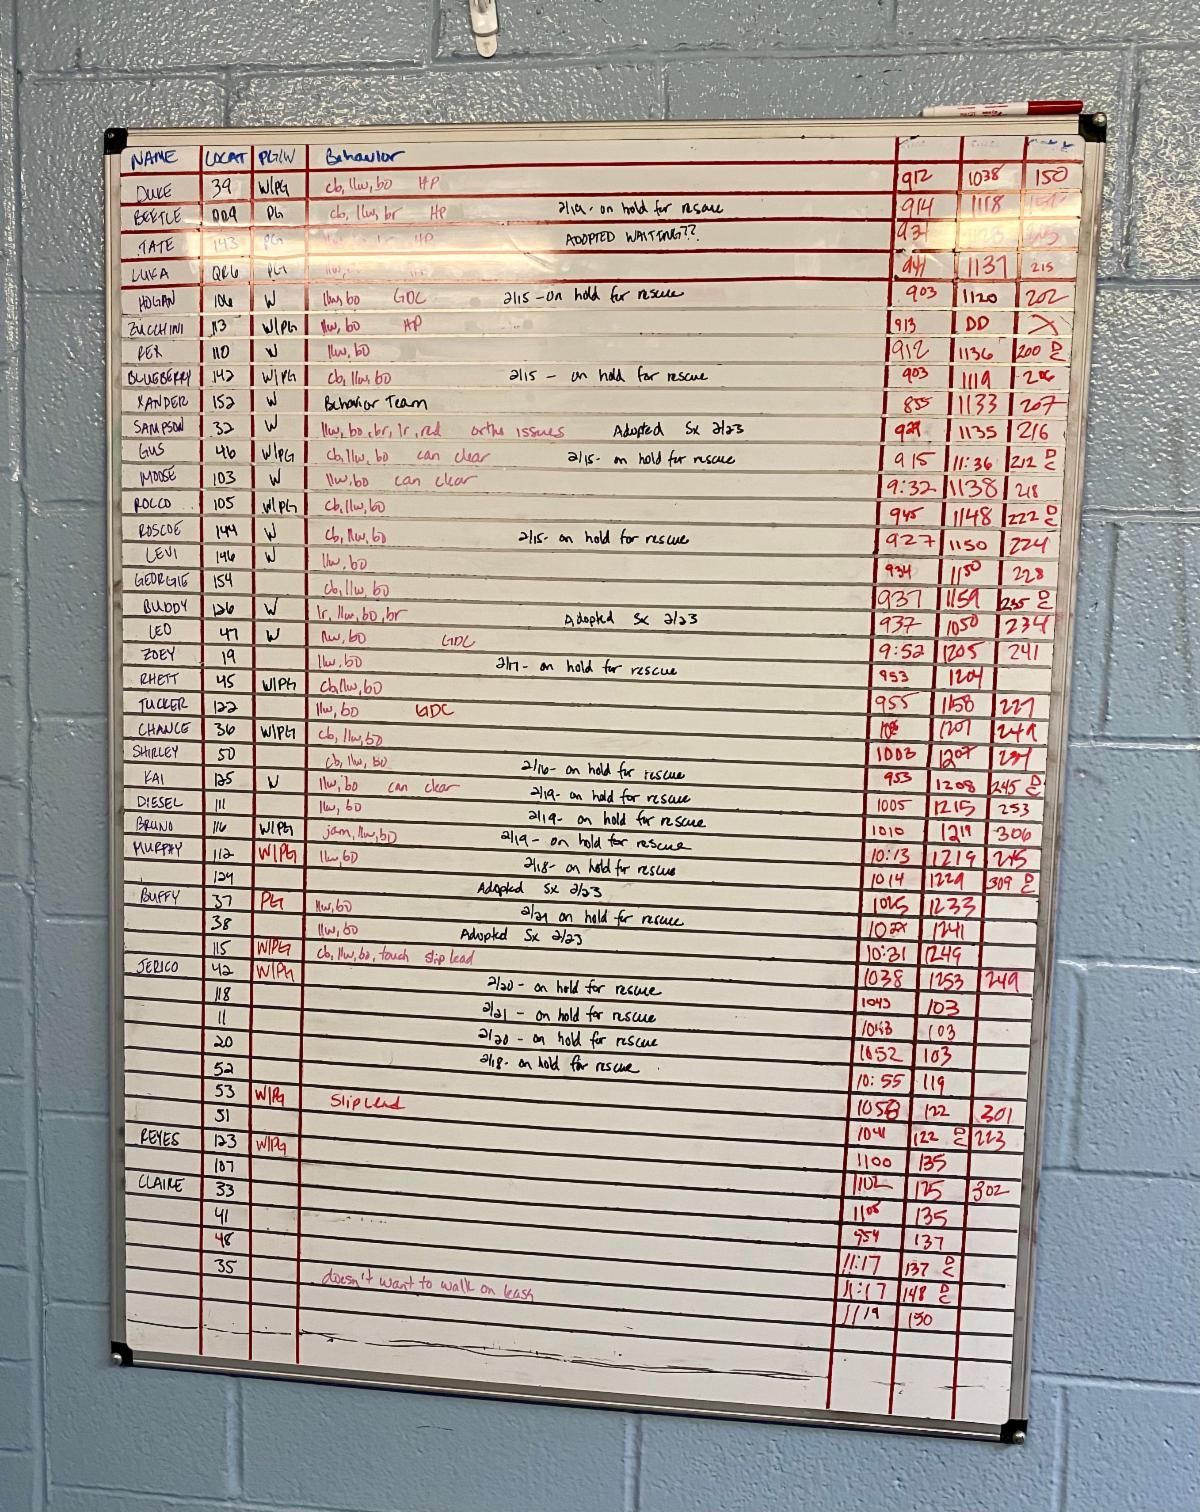 NAME LOCAT PG/W Behavior
DUKE 39 W/PG cb, llw, bo HP 912 1038 150
BEETLE PG cb, llw, br HP 2/19 - on hold for rescue 914 1118
TATE 143 PG HP ADOPTED WAITING??
LUKA QR6 PG llw, 941 1137 215
HOGAN 106 W llw, bo GDC 2/15 - on hold for rescue 903 1120 202
ZUCCHINI 113 W/PG llw, bo HP 913 DD X
REX 110 W llw, bo 912 1136 200 DC
BLUEBERRY 142 W/PG cb, llw, bo 2/15 - on hold for rescue 903 1119 206
XANDER 152 W Behavior Team 855 1133 207
SAMPSON 32 W llw, bo, br, lr, red ortho issues Adopted Sx 2/23 1135 216
GUS 46 W/PG cb, llw, bo can clear 2/15- on hold for rescue 915 11:36 212 DC
MOOSE 103 W llw, bo can clear 9:32 1138 218
ROCCO 105 W/PG cb, llw, bo 945 1148 222 DC
ROSCOE 144 W cb, llw, bo 2/15- on hold for rescue 927 1150 224
LEVI 146 W llw, bo 934 1150 228
GEORGIE 154 cb, llw, bo 937 1159 235 DC
BUDDY 126 W lr, llw, bo, br Adopted Sx 2/23 937 1050 234
LEO 47 W llw, bo GDC 9:52 1205 241
ZOEY 19 llw, bo 2/17- on hold for rescue 953 1204
RHETT 45 W/PG cb, llw, bo 955 1158 227
TUCKER 122 llw, bo GDC 1207
CHANCE 36 W/PG cb, llw, bo 1003 1207
SHIRLEY 50 cb, llw, bo 2/16- on hold for rescue 953 1208 245 DC
KAI 125 W llw, bo can clear 2/19- on hold for rescue 1005 1215 253
DIESEL 111 llw, bo 2/19- on hold for rescue 1010 1219 306
BRUNO 116 W/PG jam, llw, bo 2/19- on hold for rescue 10:13 1219
MURPHY 112 W/PG llw, bo 2/18- on hold for rescue 1014 1229 309 DC
124 Adopted Sx 2/23 1233
BUFFY 37 PG llw, bo 2/21 on hold for rescue 1241
38 llw, bo Adopted Sx 2/23 10:31 1249
115 W/PG cb, llw, bo, touch slip lead 1038 1253 249
JERICO 42 W/PG 2/20- on hold for rescue 1043 103
118 2/21 - on hold for rescue 103
11 2/20 - on hold for rescue 1052 103
20 2/18- on hold for rescue 10:55 119
52 122 301
53 W/PG Slip lead 1041 122 DC 223
51 1100 135
REYES 123 W/PG 1102 125 302
107 135
CLAIRE 33 954 137
41 11:17 137 DC
48 11:17 148 DC
35 doesn't want to walk on leash 1119 150